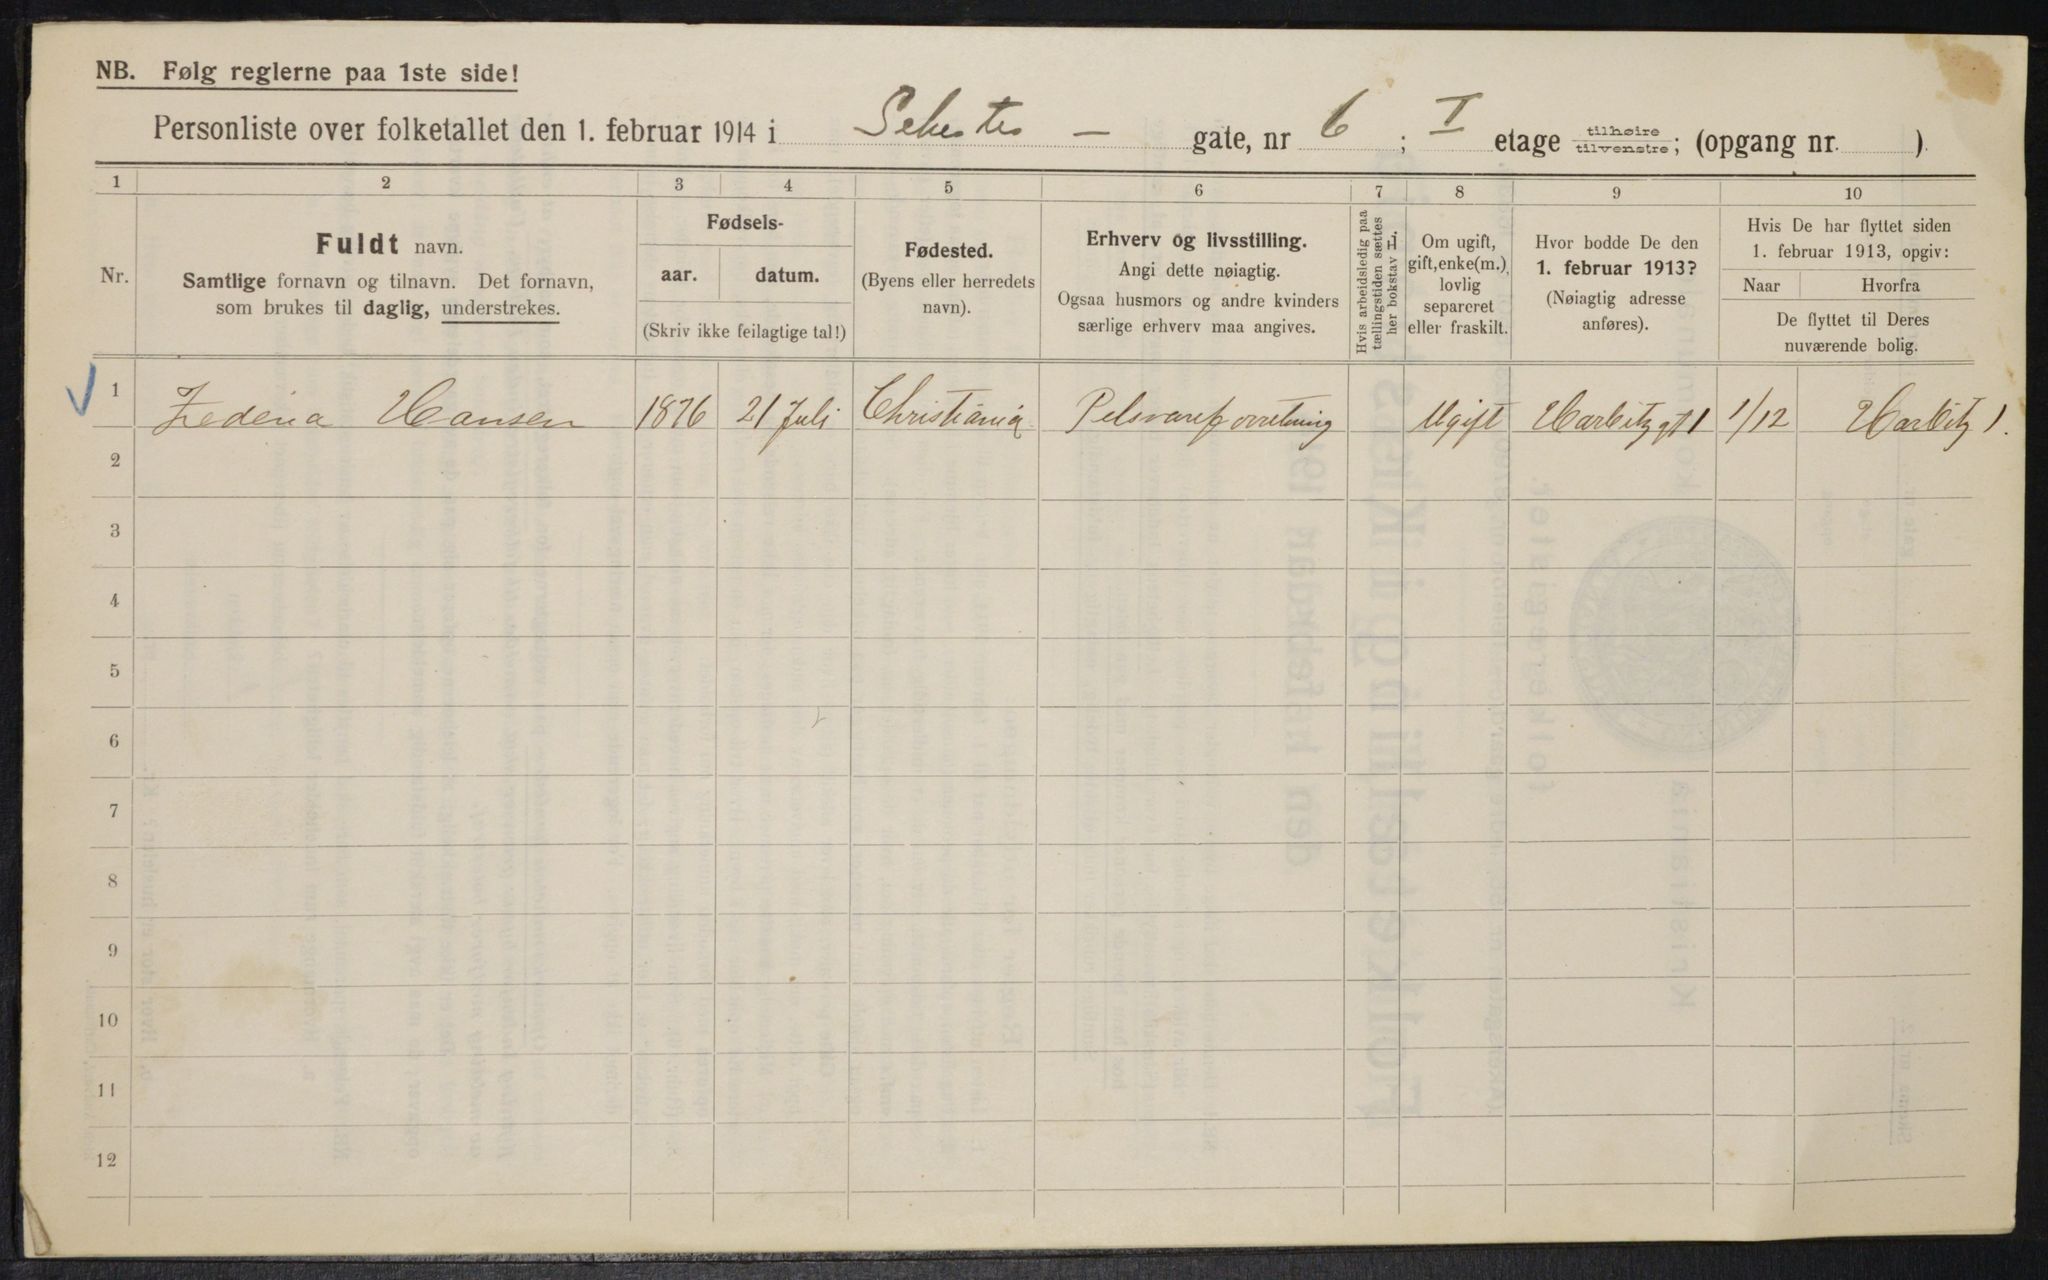 NB. Følg reglerne paa 1ste side!
Personliste over folketallet den 1. februar 1914 i Schestes - gate, nr 6 ; I etage tilhøire/tilvenstre; (opgang nr. ).
1 2 3 4 5 6 7 8 9 10
Nr.
Fuldt navn.
Samtlige fornavn og tilnavn. Det fornavn,
som brukes til daglig, understrekes.
Fødsels-
aar. datum.
(Skriv ikke feilagtige tal!)
Fødested.
(Byens eller herredets
navn).
Erhverv og livsstilling.
Angi dette nøiagtig.
Ogsaa husmors og andre kvinders
særlige erhverv maa angives.
Hvis arbeidsledig paa
tællingstiden sættes
her bokstav L.
Om ugift,
gift, enke(m.),
lovlig
separeret
eller fraskilt.
Hvor bodde De den
1. februar 1913?
(Nøiagtig adresse
anføres).
Hvis De har flyttet siden
1. februar 1913, opgiv:
Naar Hvorfra
De flyttet til Deres
nuværende bolig.
1 Hansen 1876 21 Juli Christiania Pelsvareforretning Ugift Harbitzgt 1 1/12 Harbitz 1.
2
3
4
5
6
7
8
9
10
11
12